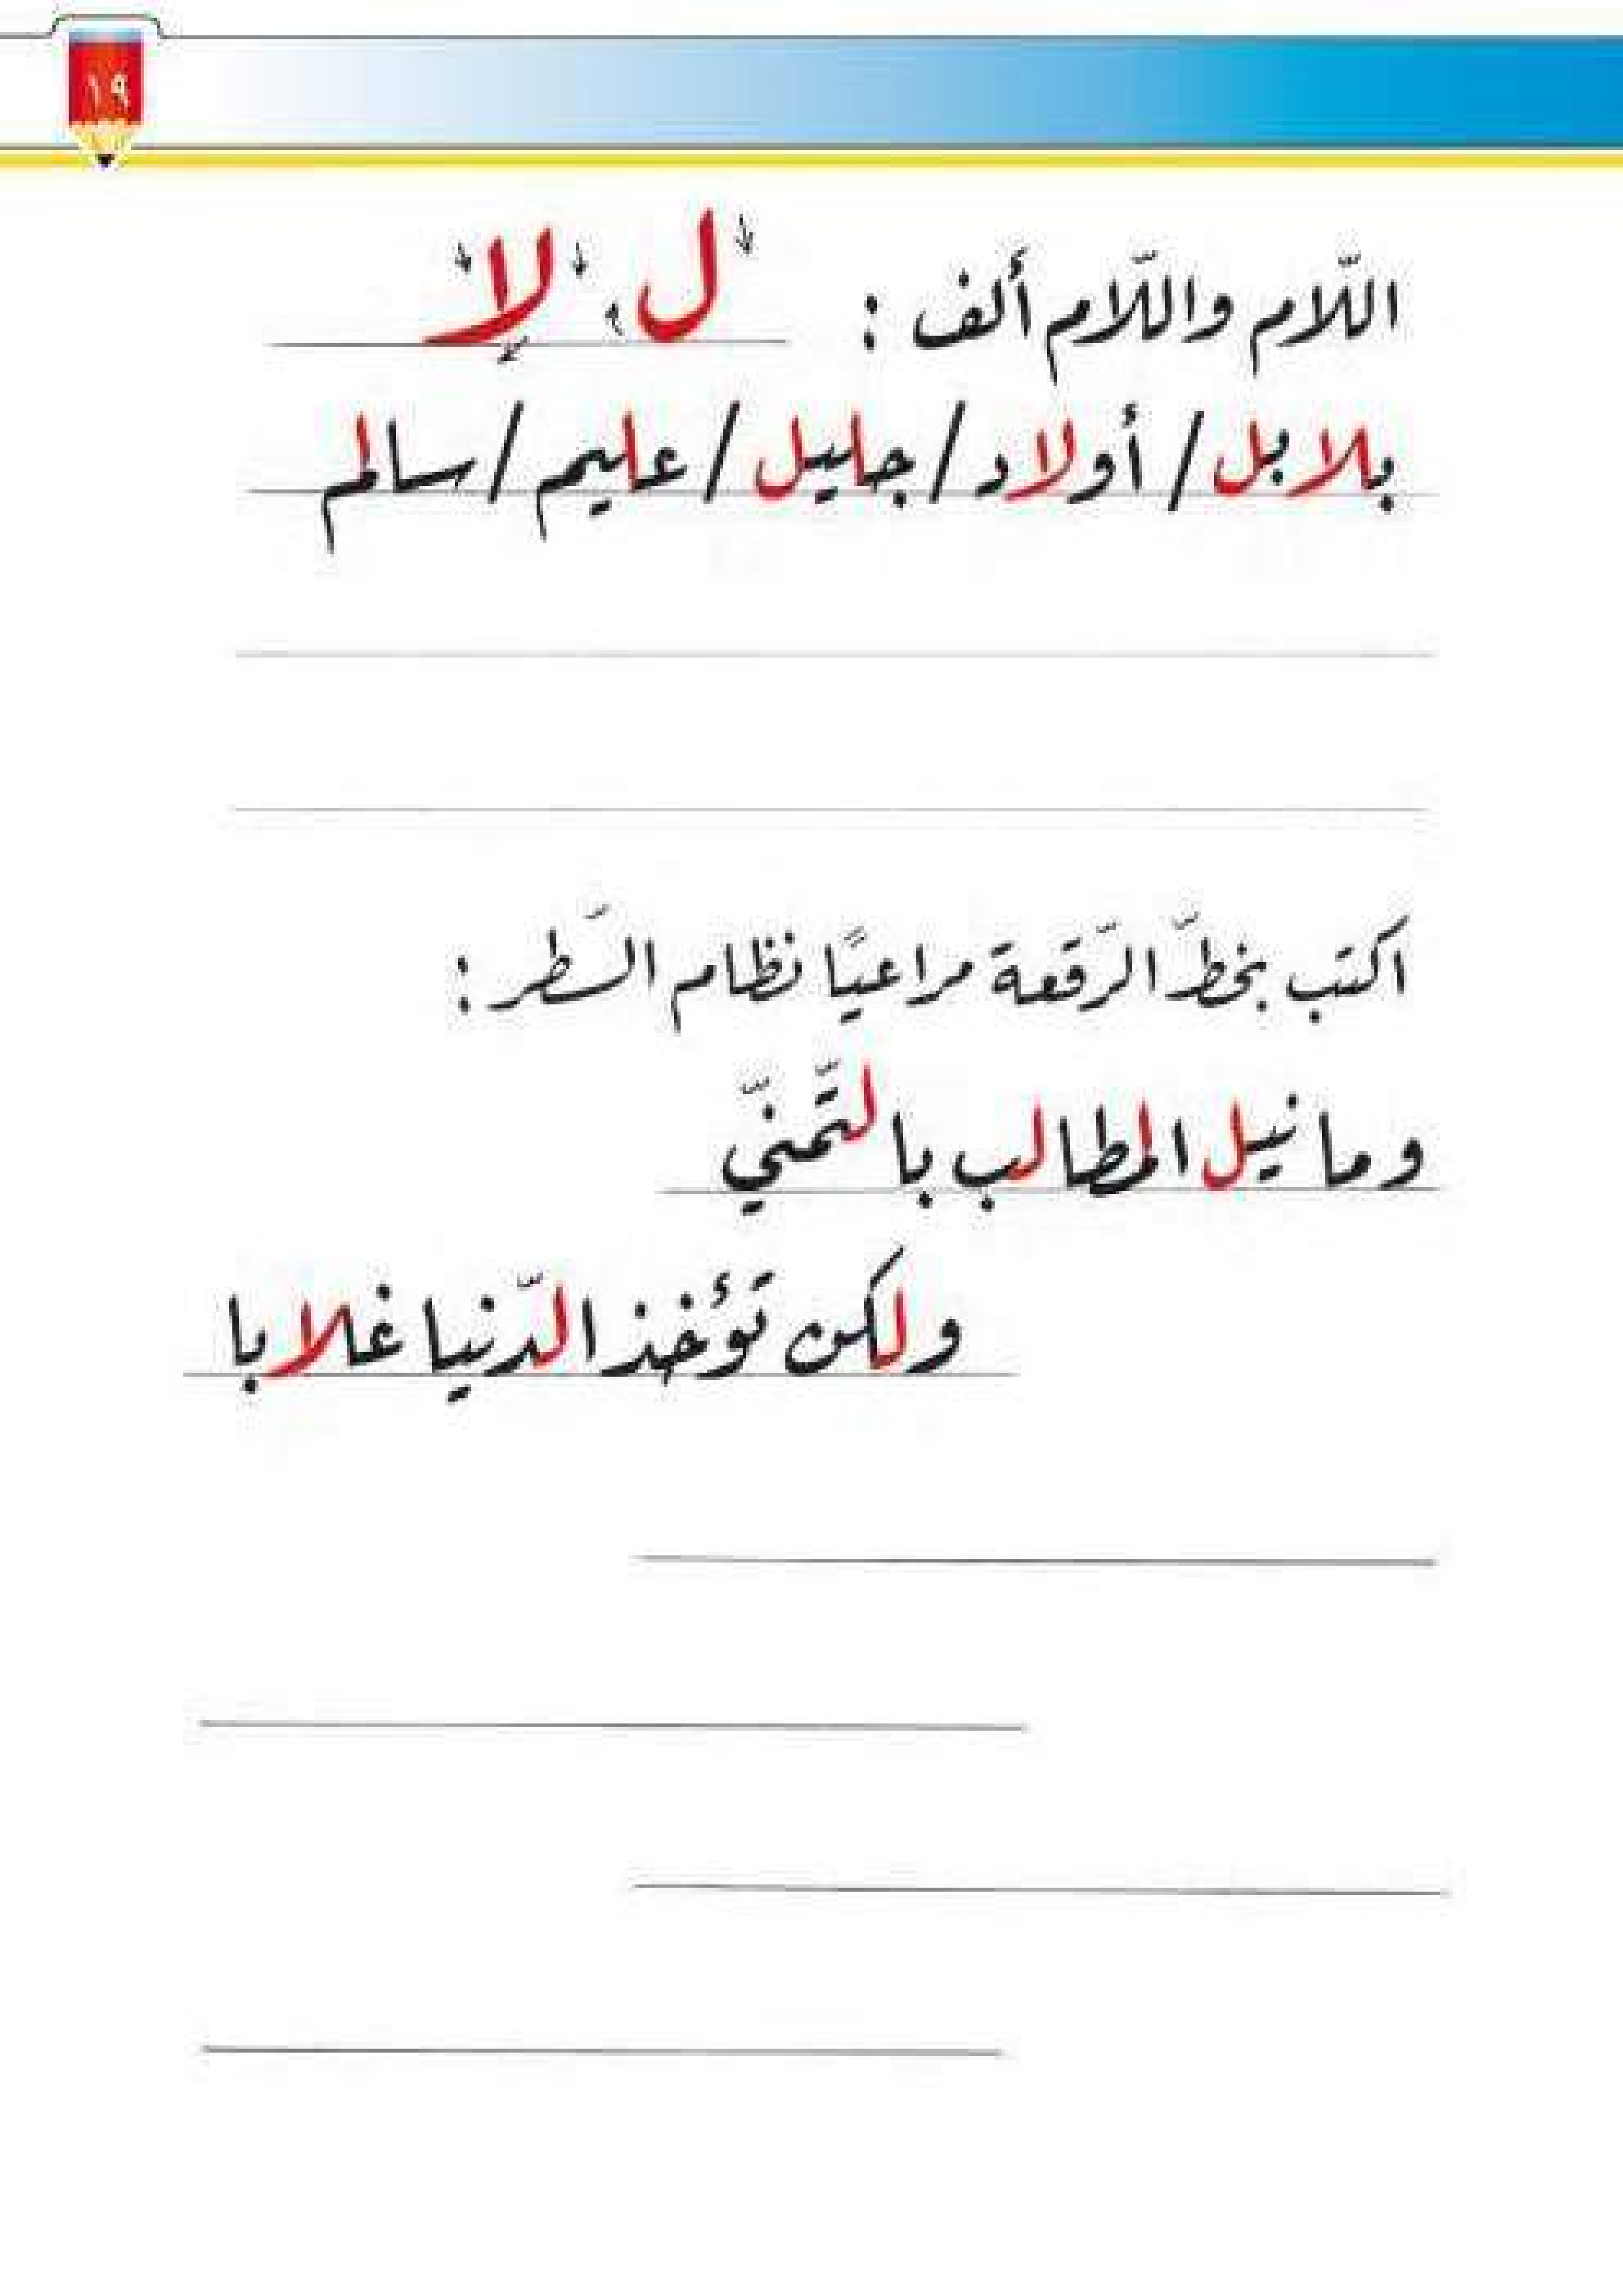 ١٩
اللّام واللّام ألف : ل لا
بلابل / أولاد / جليل / عليم / سالم
اكتب بخطّ الرّقعة مراعيًا نظام السّطر :
وما نيل المطالب بالتّمنّي
ولكن تؤخذ الدّنيا غلابا